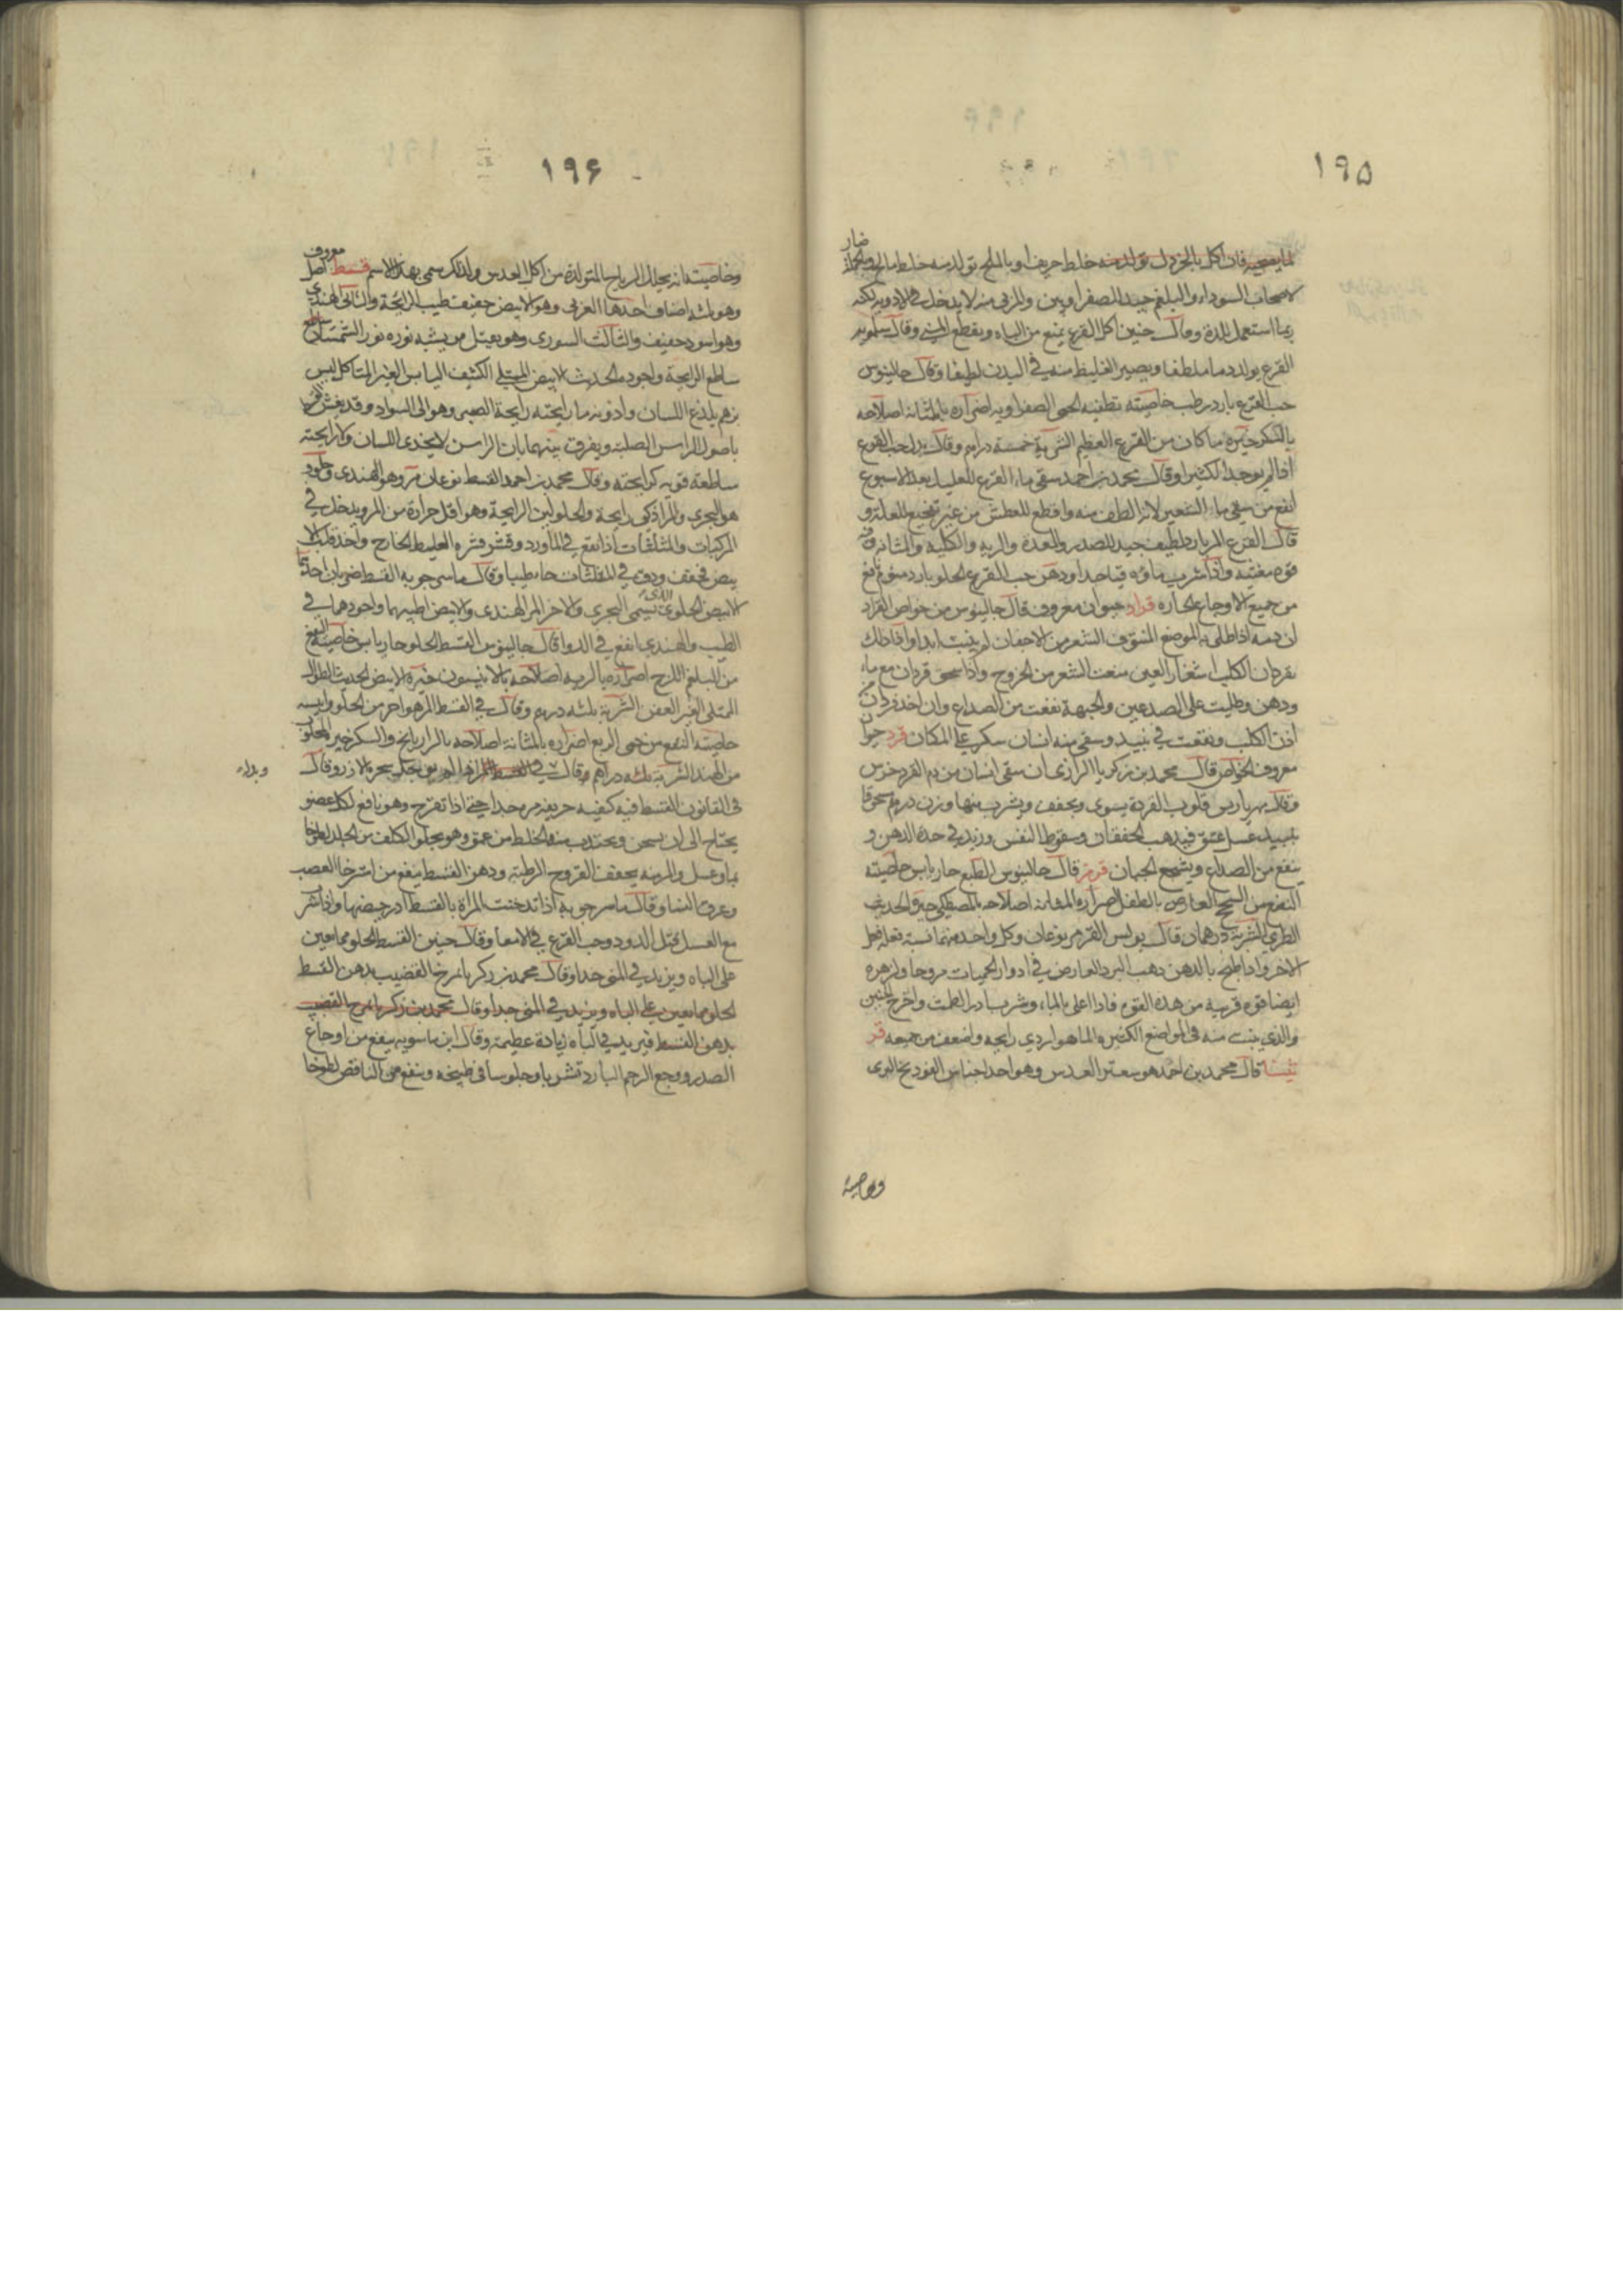 ١٩٥
فان اكل بالخردل تولد منه خلط حريف وبالملح تولد منه خلط مالح
لاصحاب السوداء والبلغم جيد للصفراويين والمربى منه لا يدخل في الادوية لكنه
ربما استعمل للذة وقال حنين اكل القرع يمنع من الباه ويقطع المني وقال سلمويه
القرع يولد دما ملطفا ويصير الغليظ منه في البدن لطيفا وقال جالينوس
حب القرع بارد رطب خاصيته تطفيه الحمى الصفراويه اضراره بالمثانة اصلاحه
بالسكر خيره ما كان من القرع العظيم الشربة خمسة دراهم وقال بدل حب القرع
اذا لم يوجد الكثيرا وقال محمد بن احمد سقى ماء القرع للعليل بعد الاسبوع
انفع من سقى ماء الشعير لانه الطف منه واقطع للعطش من غير تهييج للعلة و
قال القرع المر بارد لطيف جيد للصدر والمعدة والريه والكليه والمثانه وفيه
قوه مغثيه واذا شرب ماؤه قيا جدا ودهن حب القرع الحلو بارد منوم نافع
من جميع الاوجاع الحاره قراد حيوان معروف قال جالينوس من خواص القراد
ان دمه اذا طلي به الموضع المنتوف الشعر من الاجفان لم ينبت ابدا واذا دلك
بقردان الكلب اشفار العين منعت الشعر من الخروج واذا سحق قردان مع ماء
ودهن وطليت على الصدعين والجبهة نفعت من الصداع وان اخذ قردان من
اذن الكلب ونقعت في نبيذ وسقى منه انسان سكر على المكان قرد حيوان
معروف الخواص قال محمد بن زكريا الرازى ان سقى انسان من دم القرد خرس
وقال بهرياريس قلوب القردة يسوى ويجفف ويشرب منها وزن درهم مسحوقا
بنبيذ عسل عتيق فيذهب الخفقان وسقوط النفس ويزيد في حدة الذهن و
ينفع من الصداع ويشجع الجبان قرمز قال جالينوس الطبع حار يابس خاصيته
النفع من السحج العارض بالطفل اضراره للمثانه اصلاحه بالمصطكى جيده الحديث
الطري الشربة درهمان قال بولس القرمز نوعان وكل واحد منهما نسبة فعله فعل
الاخر واذا طبخ بالدهن ذهب البرد العارض في ادوار الحميات مروخا ولزهره
ايضا قوه قريبه من هذه القوه فاذا اغلى بالماء وشرب ادر الطمث واخرج الجنين
والذي ينبت منه في المواضع الكثيره الماء هو اردي رايحه واضعف من جميعه قر
قال محمد بن احمد هو سعتر القدس وهو احد اجناس الفودنج البرى
وخاصيته
١٩۶
وخاصيته انه يحلل الرياح المتولدة من اكل العدس ولذلك سمى بهذا الاسم قسط اصل معروف
وهو ثلثه اصناف احدها العربى وهو الابيض خفيف طيب الرايحة والثانى الهندي
وهو اسود خفيف والثالث السورى وهو ثقيل من يشبه نوره نور الشمشار
ساطع الرايحة واجوده الحديث الابيض الممتلي الكثيف اليابس الغير المتاكل ليس
بزهم يلذع اللسان وادونه ما رايحته رايحة الصبر وهو الى السواد وقد يغش القسط
باصول الراسن الصلبة ويفرق بينهما بان الراسن لا يحذى اللسان ولا رايحته
ساطعة قويه كرايحته وقال محمد بن احمد القسط نوعان مر وهو الهندى وحلو و
هو البحرى والمر اذكى رايحة والحلو لين الرايحة وهو اقل حرارة من المر ويدخل في
المركبات والمثلثات اذا نقع في الماورد وقشر قشره الغليظ الخارج واخذ قلبه الا
بيض فجفف ودق في المثلثات جاء طيبا وقال ماسرجويه القسط ضربان احدهما
الابيض الحلو الذى يسمى البحرى والاخر المر الهندى والابيض اطيبهما واجودهما في
الطيب والهندى انفع في الدوا قال جالينوس القسط الحلو حار يابس خاصيته النفع
من البلغم اللزج اضراره بالريه اصلاحه بالانيسون خيره الابيض الحديث الطوال
الممتلى الغير العفن الشربة ثلثه دراهم وقال في القسط المر هو احر من الحلو وايبسه
خاصيته النفع من حمى الربع اضراره بالمثانة اصلاحه بالرازيانج والسكر خيره المجلوب
من الهند الشربة ثلثه دراهم وقال
وبدله
في القانون القسط فيه كيفيه حريفه مر جدا حتى اذا تقرح وهو نافع لكل عضو
يحتاج الى ان يسخن ويجتذب منه الخلط من عمق وهو يجلو الكلف من الجلد لطوخا
بماء وعسل والمر منه يجفف القروح الرطبة ودهن القسط ينفع من استرخا العصب
وعرق النسا وقال ماسرجويه اذا تدخنت المراة بالقسط ادر حيضها واذا شرب
مع العسل قتل الدود وحب القرع في الامعا وقال حنين القسط الحلو مما يعين
على الباه ويزيد في المني جدا وقال محمد بن زكريا تمرخ القضيب بدهن القسط
الحلو مما يعين على الباه ويزيد في المني جدا وقال محمد بن زكريا تمرخ القضيب
بدهن القسط فيزيد في الباه زيادة عظيمة وقال ابن ماسويه ينفع من اوجاع
الصدر ووجع الرحم البارد شربا وجلوسا في طبيخه وينفع من النافض لطوخا